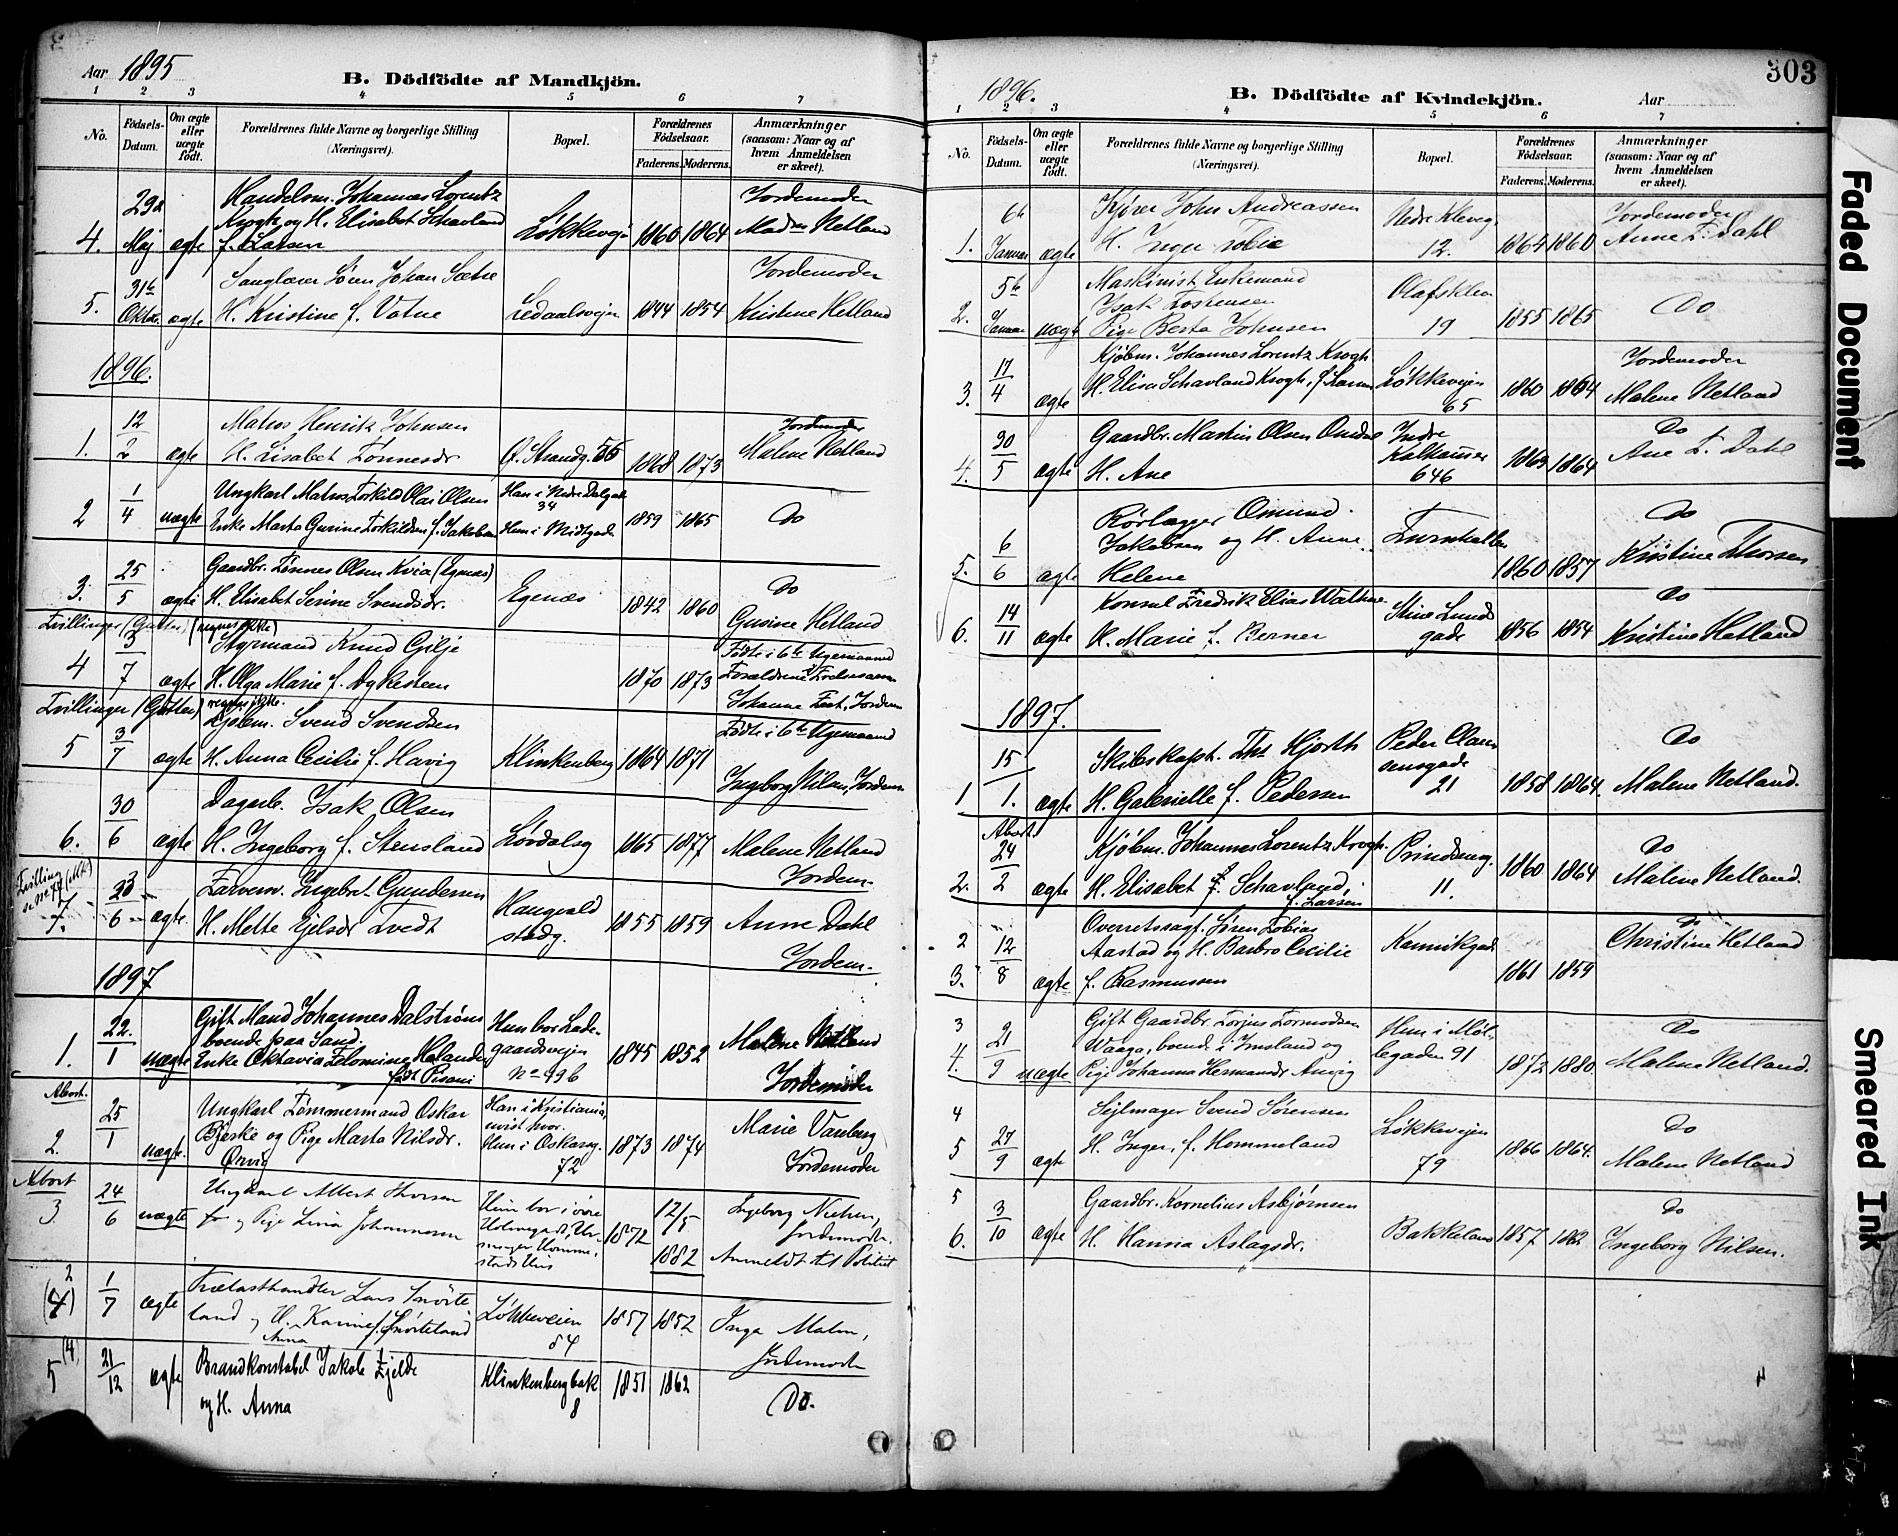 Aar 1895
B. Dödfödte af Mandkjön.
1 2 3 4 5 6 7
No.
Födsels-Datum.
Om ægte eller uægte født.
Forældrenes fulde Navne og borgerlige Stilling (Næringsvei).
Bopæl.
Forældrenes Födselsaar.
Faderens. Moderens.
Anmærkninger (saasom: Naar og af hvem Anmeldelsen er skeet).
4. 29 Maj ægte Handelsm. Johannes Lorentz
Krogh og H. Elisabet Schavland
f. Larsen
Løkkevejn 1860 1864 Jordemoder
Netland
5. 31te Oktbr. ægte Sanglærer Johan Sætre
H. Kristine f. Vatne
Ledaalsvejn 1844 1854 Jordemoder
Kristine Hetland
1896.
1. 12/2 ægte Matros Henrik Johnsen
H. Lisabet Tönnesdr
Ø. Strandg. 55 1868 1873 Jordemoder
Malene Netland
2 1/4 uægte Ungkarl Matros Torkild Olai Olsen
Enke Marta Gurine Torkildsen f. Jakobsen
Han i Nedre Dalgade
34
Hun i Midtgade
1859 1865 Do
3. 25/5 ægte Gaardbr. Tönnes Olsen Kvia (Egenæs)
H. Elisabet Serine Svendsdr.
Egenæs 1842 1860 Do
Gurine Hetland
Tvillinger (Gutter) (regnes ikke)
4 3/7 ægte Styrmand Knud Gilje
H. Olga Marie f. Dykesteen
1870 1873 Fødte i 6te Ugemaaned
Johanne Jordem
Tvillinger (Gutter) regnes ikke.
5 3/7 ægte Kjøbm. Svend Svendsen
H. Anna Cecilie f. Havig
Klinkenberg 1864 1871 Fødte i 6te Ugemaaned
Ingeborg Nilsen, Jordem
6. 30/6 ægte Dagarb. Isak Olsen
H. Ingeborg f. Stensland
Lövdalsg 1865 1877 Malene Netland
Jordem.
Tvilling
7. ægte Farvem. Ingebret Gundersen
H. Mette Ejelsdr Tvedt
Haugvald
stadg.
1855 1859 Anne Dahl
Jordem.
1897
1. 22./1 uægte Gift Mand Johannes Dalström
boende paa Sand.
Enke Oktavia Filomine Helander
født Pisani
Hun bor Lade-
gaardsvejen
No 496
1845 1852 Malene Netland
Jordemoder
Abort.
2. 25/1 uægte. Ungkarl Tömmermand Oskar
Bjerke og Pige Marta Nilsdr.
Ørvig
Han i Kristiania,
uvist hvor.
Hun i Oskarsg.
72
1873 1874 Marie Vanberg
Jordemoder
Abort
3. 24/6 uægte Ungkarl Albert Thorsen
Pige Lina Johannesen
Hun bor i
1872 12/5
1882
Ingeborg Nielsen,
Jordemoder.
Anmeldt til Politiet
2
(4) 1/7 ægte Trælasthandler Lars Snörte
land H. Karine f. Snörteland
Anna
Løkkeveien
84
1857 1852 Inga Malm,
Jordemoder
5 (4) 21/12 ægte Brandkonstabel Jakob Fjelde
og H. Anna
Klinkenbergbak
8
1851 1862 Do.
303
1896.
B. Dödfödte af Kvindekjön.
Aar
1 2 3 4 5 6 7
No.
Födsels-Datum.
Om ægte eller uægte født.
Forældrenes fulde Navne og borgerlige Stilling (Næringsvei).
Bopæl.
Forældrenes Födselsaar.
Faderens. Moderens.
Anmærkninger (saasom: Naar og af hvem Anmeldelsen er skeet).
1. 6te Januar ægte Kjører John Andreassen
H. Inger
Nedre Kleveg.
12.
1864 1860 Jordemoder
Anne T. Dahl
2. 5te Januar uægt Maskinist Enkemand
Isak Torkensen
Pige Berta Johnsen
Olafsklev
19
1855 1865 Do
3. 17/4 ægte Kjøbm. Johannes Lorentz Krogh
H. Elisa Schavland Krogh, f. Larsen
Løkkevejen
65
1860 1864 Jordemoder
Malene Netland
4. 30/5 ægte Gaardbr. Martin Olsen Omdal
H. Ane
Indre
Kalhammer
646
1863 1864 Do
Ane T. Dahl
5. 6/6 ægte Rörlægger Omund
Jakobsen og H. Anne
Helene
Turnhallen
1860 1857 Do
Kristine Thorsen
6. 14/11 ægte Konsul Fredrik Elias Wathne
H. Marie f. Berner
Stine Lunds
gade
1856 1854 Do
Kristine Hetland
1897.
1 15/1. ægte Skibskapt. Ths Hjorth
H. Gabrielle f. Pedersen
Peder Claus
sensgade
21
1858 1864. Do
Malene Netland.
Abort.
2. 24/2 ægte Kjøbm. Johannes Lorentz Krogh.
H. Elisabet f. Schavland,
f. Larsen
Prindseng.
11.
1860 1864 Do
Malene Netland.
2
3. 12/8 ægte Overretssagf. Sören Tobias
Aastad og H. Barbro Cecilie
f. Rasmussen
Kannikgad.
1861 1859 Do
Christine Hetland
3
4. 21/9 uægte Gift Gaardbr. Torjus Tormodsen
Waaga, boend. i Imsland og
Pige Johanna Hermandr Anvig
Hun i Møl-
legaden 91
1872 1880 Do
Malene Netland.
4
5 27/9 ægte Sejlmager Svend Sørensen
H. Inger, f. Hommeland
Løkkevejen
79
1866 1864. Do
Malene Netland
5
6. 3/10 ægte Gaardbr. Kornelius Asbjørnsen
H. Hanna Aslagsdr.
Bakkeland 1857 1862 Do
Ingeborg Nilsen.
Faded Document
Smeared Ink